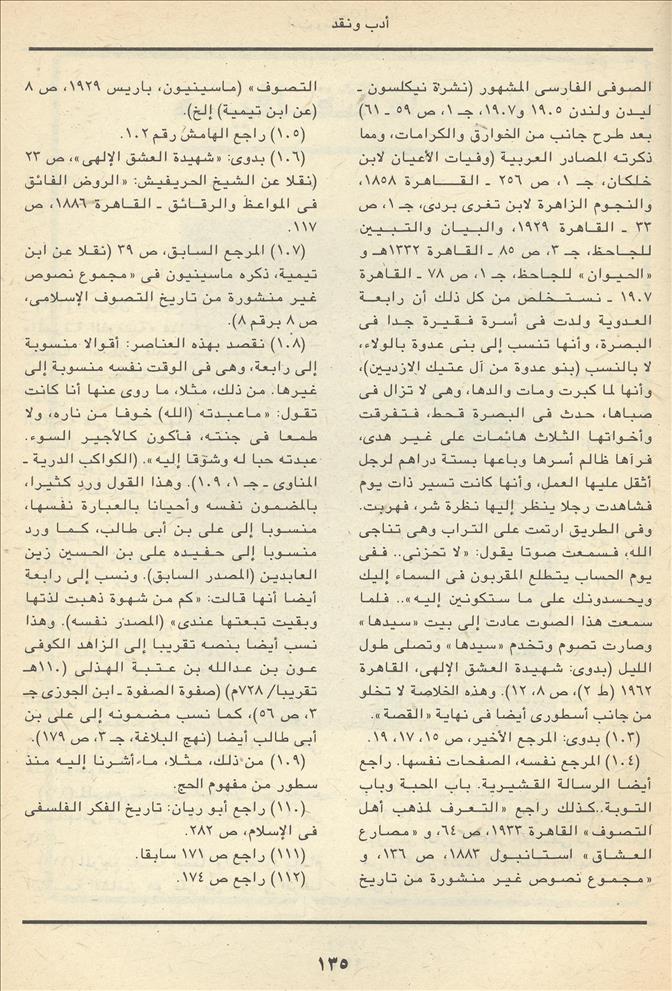 أدب ونقد
الصوفى الفارسى المشهور (نشرة نيكلسون ـ
ليدن ولندن ١٩٠٥ و١٩٠٧، جـ ١، ص ٥٩ ـ ٦١)
بعد طرح جانب من الخوارق والكرامات، ومما
ذكرته المصادر العربية (وفيات الأعيان لابن
خلكان، جـ ١، ص ٢٥٦ ـ القـــاهرة ١٨٥٨،
والنجوم الزاهرة لابن تغرى بردى، جـ ١، ص
٣٣ ـ القاهرة ١٩٢٩، والبيان والتبيين
للجاحظ، جـ ٣، ص ٨٥ ـ القاهرة ١٣٣٢هـ و
«الحيوان» للجاحظ، جـ ١، ص ٧٨ ـ القاهرة
١٩٠٧ ـ نستخلص من كل ذلك أن رابعة
العدوية ولدت فى أسرة فقيرة جدا فى
البصرة، وأنها تنسب إلى بنى عدوة بالولاء،
لا بالنسب (بنو عدوة من آل عتيك الازديين)،
وأنها لما كبرت ومات والدها، وهى لا تزال فى
صباها، حدث فى البصرة قحط، فتفرقت
وأخواتها الثلاث هائمات على غير هدى،
فرآها ظالم أسرها وباعها بستة دراهم لرجل
أثقل عليها العمل، وأنها كانت تسير ذات يوم
فشاهدت رجلا ينظر إليها نظرة شر، فهربت.
وفى الطريق ارتمت على التراب وهى تناجى
الله، فسمعت صوتا يقول: «لا تحزنى.. ففى
يوم الحساب يتطلع المقربون فى السماء إليك
ويحسدونك على ما ستكونين إليه».. فلما
سمعت هذا الصوت عادت إلى بيت «سيدها»
وصارت تصوم وتخدم «سيدها» وتصلى طول
الليل (بدوى: شهيدة العشق الإلهى، القاهرة
١٩٦٢ (ط ٢)، ص ٨، ١٢). وهذه الخلاصة لا تخلو
من جانب أسطورى أيضا فى نهاية «القصة».
(١٠٣) بدوى: المرجع الأخير، ص ١٥، ١٧، ١٩.
(١٠٤) المرجع نفسه، الصفحات نفسها. راجع
أيضا الرسالة القشيرية. باب المحبة وباب
التوبة..كذلك راجع «التعرف لمذهب أهل
التصوف» القاهرة ١٩٣٣، ص ٦٤، و «مصارع
العشاق» استانبول ١٨٨٣، ص ١٣٦، و
«مجموع نصوص غير منشورة من تاريخ
التصوف» (ماسينيون، باريس ١٩٢٩، ص ٨
(عن ابن تيمية) إلخ).
(١٠٥) راجع الهامش رقم ١٠٢.
(١٠٦) بدوى: «شهيدة العشق الإلهى»، ص ٢٣
(نقلا عن الشيخ الحريفيش: «الروض الفائق
فى المواعظ والرقائق ـ القاهرة ١٨٨٦، ص
١١٧.
(١٠٧) المرجع السابق، ص ٣٩ (نقلا عن ابن
تيمية، ذكره ماسينيون فى «مجموع نصوص
غير منشورة من تاريخ التصوف الإسلامى،
ص ٨ برقم ٨).
(١٠٨) نقصد بهذه العناصر: أقوالا منسوبة
إلى رابعة، وهى فى الوقت نفسه منسوبة إلى
غيرها. من ذلك، مثلا، ما روى عنها أنا كانت
تقول: «ماعبدته (الله) خوفا من ناره، ولا
طمعا فى جنته، فأكون كالأجير السوء.
عبدته حبا له وشوقا إليه». (الكواكب الدرية ـ
المناوى ـ جـ ١، ١٠٩). وهذا القول ورد كثيرا،
بالمضمون نفسه وأحيانا بالعبارة نفسها،
منسوبا إلى على بن أبى طالب، كما ورد
منسوبا إلى حفيده على بن الحسين زين
العابدين (المصدر السابق). ونسب إلى رابعة
أيضا أنها قالت: «كم من شهوة ذهبت لذتها
وبقيت تبعتها عندى» (المصدر نفسه). وهذا
نسب أيضا بنصه تقريبا إلى الزاهد الكوفى
عون بن عبدالله بن عتبة الهذلى (١١٠هـ
تقريبا/ ٧٢٨م) (صفوة الصفوة ـ ابن الجوزى جـ
٣، ص ٥٦)، كما نسب مضمونه إلى على بن
أبى طالب أيضا (نهج البلاغة، جـ ٣، ص ١٧٩).
(١٠٩) من ذلك، مثلا، ما أشرنا إليه منذ
سطور من مفهوم الحج.
(١١٠) راجع أبو ريان: تاريخ الفكر الفلسفى
فى الإسلام، ص ٢٨٢.
(١١١) راجع ص ١٧١ سابقا.
(١١٢) راجع ص ١٧٤.
١٣٥